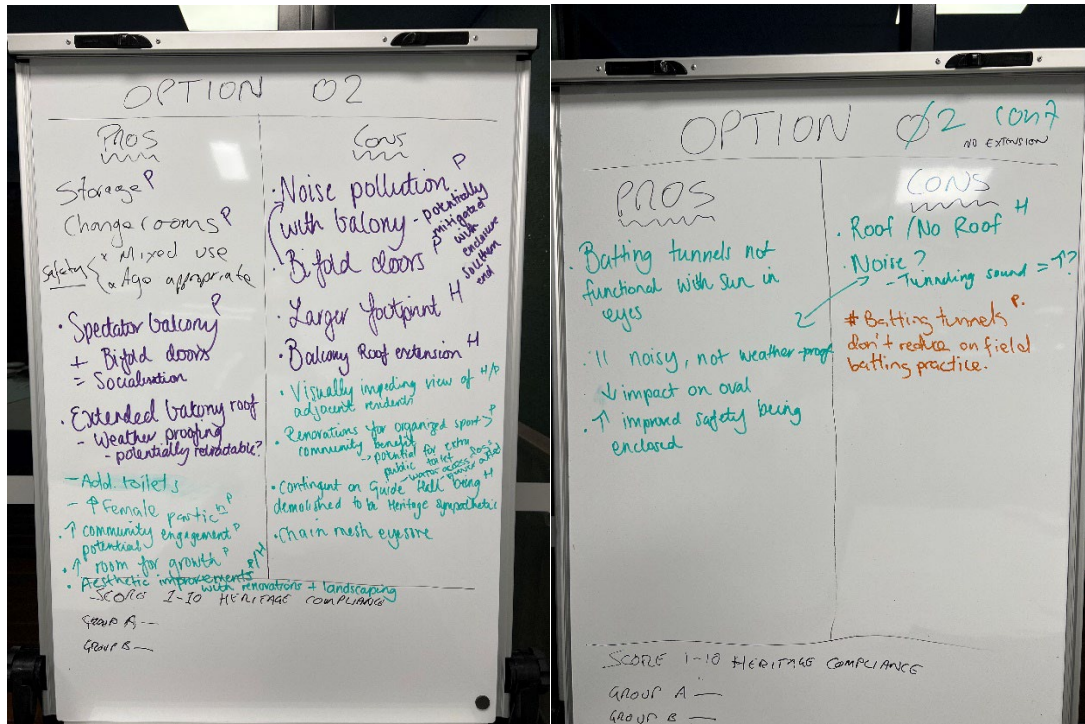 OPTION 02
PROS
Storage P
Changerooms P
Safety { * Mixed use
* Age appropriate
· Spectator balcony P
+ Bifold doors
= Socialisation
· Extended balcony roof
- Weather proofing
- potentially retractable?
- Add. toilets
- ↑ Female partic n P
· ↑ community engagement P
potential
· ↑ room for growth P
· Aesthetic improvements P/H
with renovations + landscaping
CONS
· Noise pollution P
with balony - potentially
mitigated
with
enclosure
southern
end
· Bifold doors P
· Larger footprint H
· Balcony Roof extension H
· Visually impeding view of H/P
adjacent residents
· Renovations for organized sport > P
community benefit
→ potential for extra
public toilet
- water across
· Contingent on Guide Hall being H
demolished to be Heritage sympathetic
· Chain mesh eyesore
SCORE 1-10 HERITAGE COMPLIANCE
GROUP A —
GROUP B —
OPTION 02 cont
NO EXTENSION
PROS
· Batting tunnels not
functional with sun in
eyes
· " noisy, not weather-proof
↓ impact on oval
· ↑ improved safety being
enclosed
CONS
· Roof / No Roof H
· Noise?
- Tunneling sound = ↑?
2
# Batting tunnels P.
don't reduce on field
batting practice.
SCORE 1-10 HERITAGE COMPLIANCE
GROUP A —
GROUP B —